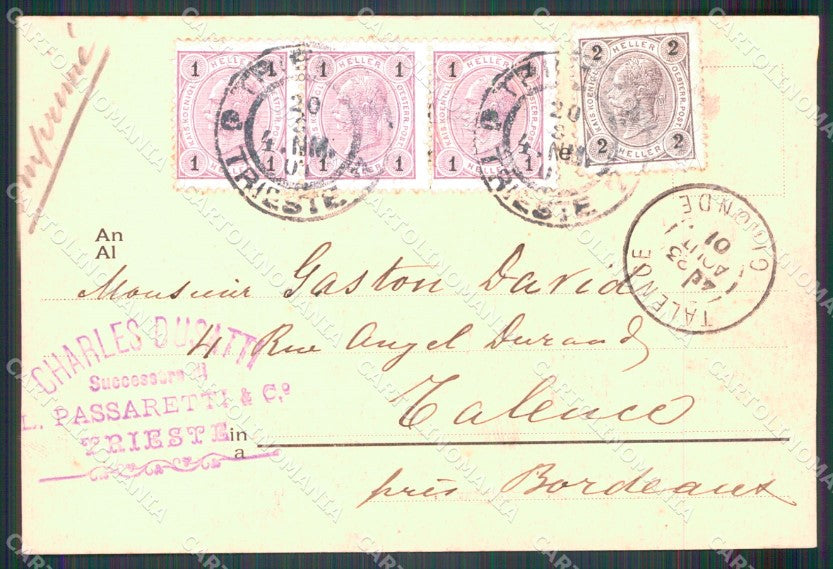 Imprimé
1 HELLER 1
KAIS.KOENIGL. OESTERR.POST
1 1
1 HELLER 1
KAIS.KOENIGL. OESTERR.POST
1 1
1 HELLER 1
KAIS.KOENIGL. OESTERR.POST
1 1
2 HELLER 2
KAIS.KOENIGL. OESTERR.POST
2 2
20
TRIESTE
20
TRIESTE
TALENCE
GIRONDE
23
AOUT
01
An
Al
Monsieur Gaston David
4 Rue Angel Durand
Talence
près Bordeaux
CHARLES DUSATTI
Successore di
L. PASSARETTI & C.º
TRIESTE
in
a
CARTOLINOMANIA